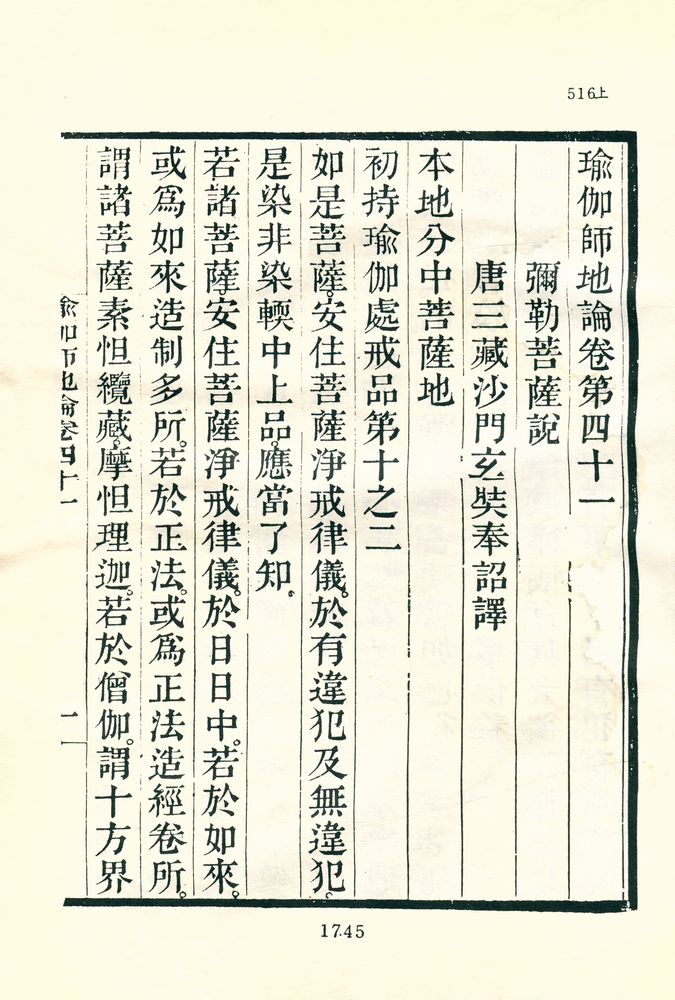 516上
瑜伽師地論卷第四十一
彌勒菩薩說
唐三藏沙門玄奘奉詔譯
本地分中菩薩地
初持瑜伽處戒品第十之二
如是菩薩。安住菩薩淨戒律儀。於有違犯及無違犯。
是染非染。輭中上品。應當了知。
若諸菩薩。安住菩薩淨戒律儀。於日日中。若於如來。
或爲如來造制多所。若於正法。或爲正法造經卷所。
謂諸菩薩素怛纜藏。摩怛理迦。若於僧伽。謂十方界
瑜伽師地論卷四十一
一
1745